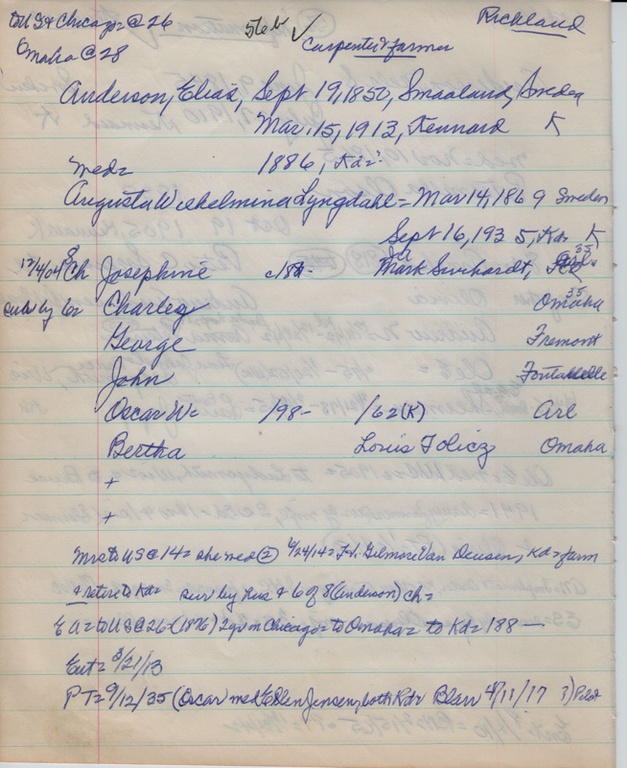 to US & Chicago = @ 26 Richland
Omaha @ 28 ✓ Carpenter & farmer
Anderson, Elias, Sept 19, 1850, Smaaland, Sweden
Mar. 15, 1913, Kennard K
med = 1886, Kd =
Augusta Wilhelmina Lyngdahl = Mar 14, 1869 Sweden
Sept 16, 1935, Kd = K
12/4/04 8 Ch Josephine c/87- Mark 35
Charley Omaha 35
George Fremont
John Fontanelle
Oscar W = /98- /62 (K) Arl
Bertha Louis Omaha
+
+
Mrs to US @ 14 = she med ② 4/24/14 = Gilmore Van Deusen, Kd = farm
& retire to Kd = sur by hus & 6 of 8 (Anderson) ch =
E A = to US @ 26 - (1876) 2 yr in Chicago = to Omaha = to Kd = 188 —
Ent = 3/21/13
PT = 9/12/35 (Oscar med Ellen Jensen, both Kd = Blair 4/11/17 Pilot